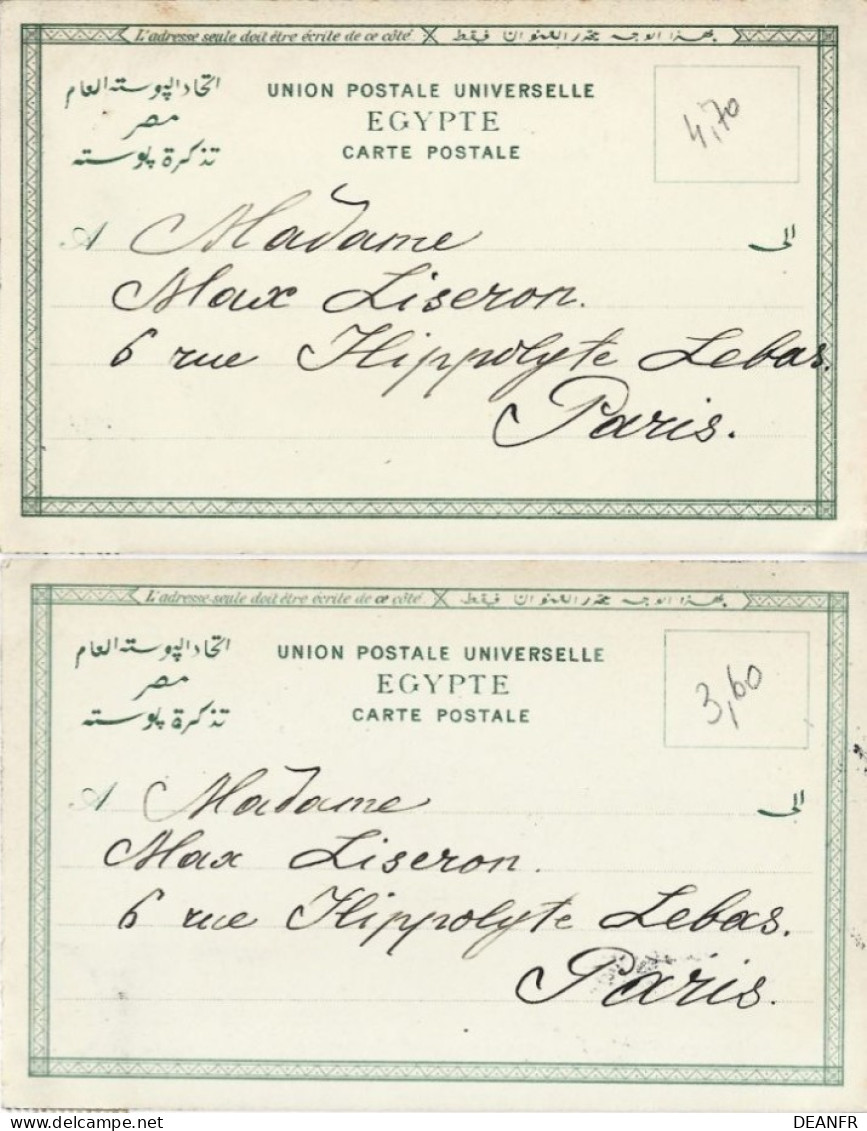 L'adresse seule doit être écrite de ce côté بهذا الوجه يحرر العنوان فقط
اتحاد البوسته العام
مصر
تذكرة بوسته
UNION POSTALE UNIVERSELLE
EGYPTE
CARTE POSTALE
4,70
A Madame الى
Max Liseron.
6 rue Hippolyte Lebas.
Paris.
L'adresse seule doit être écrite de ce côté بهذا الوجه يحرر العنوان فقط
اتحاد البوسته العام
مصر
تذكرة بوسته
UNION POSTALE UNIVERSELLE
EGYPTE
CARTE POSTALE
3,60
A Madame الى
Max Liseron.
6 rue Hippolyte Lebas.
Paris.
DEANFR